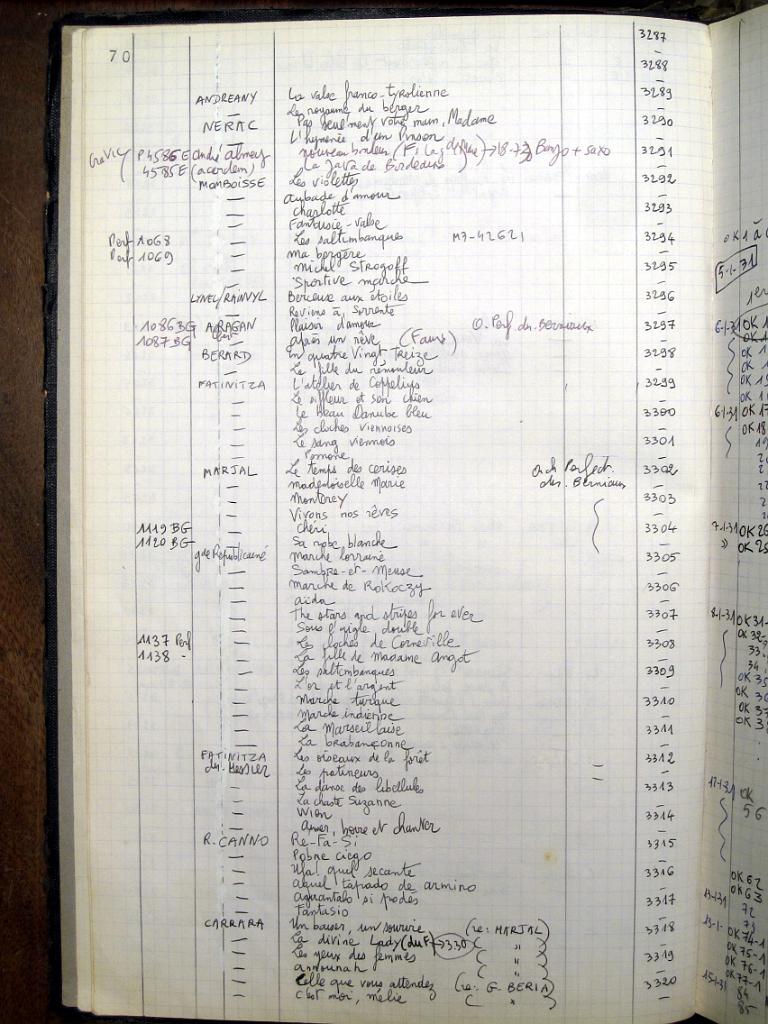 70
3287
—
3288
—
ANDREANY La valse franco-tyrolienne 3289
— Le royaume du berger —
NERAC Pas seulement votre main, Madame 3290
— L'hyménée d'un Pinson —
P4585E André nouveau bonheur 18.73 Banjo + saxo 3291
4585E (acordem) La Java de Bordeaux —
MONBOISSE Les violettes 3292
— aubade d'amour —
— Charlotte 3293
— Fantaisie-valse —
Perf 1068 — Les saltimbanques M7-42621 3294
Perf 1069 — ma bergère —
— Michel STROGOFF 3295
— Sportive marche —
LYNEL/RAINVYL Berceuse aux étoiles 3296
— Reviens à Sorrente —
1086BG ARAGAN Plaisir d'amour O. Perf. dir. Berniaux 3297
1087BG après un rêve (Fauré) —
BERARD En quatre Vingt Treize 3298
— La fille du rémouleur —
FATINITZA L'atelier de Coppélius 3299
— Le siffleur et son chien —
— Le beau Danube bleu 3300
— Les cloches viennoises —
— Le sang viennois 3301
— Pomone —
MARJAL Le temps des cerises Orch Perfect. 3302
— mademoiselle Marie dir. Berniaux —
— Monterey 3303
— Vivons nos rêves —
1119 BG — chéri 3304
1120 BG — Sa robe blanche —
gde Républicaine Marche lorraine 3305
— Sambre-et-Meuse —
— marche de RaKoczy 3306
— aïda —
— The stars and stripes for ever 3307
— Sous l'aigle double —
1137 Perf — Les cloches de Corneville 3308
1138 - — La fille de Madame Angot —
— Les saltimbanques 3309
— L'or et l'argent —
— Marche turque 3310
— Marche indienne —
— La Marseillaise 3311
— La brabançonne —
FATINITZA Les oiseaux de la forêt 3312
dir. Messier Les patineurs = —
— La danse des libellules 3313
— La chaste Suzanne —
— Wien 3314
— aimer, boire et chanter —
R. CANNO Re-Fa-Si 3315
— Pobre ciego —
— Mal que secante 3316
— Aquel tapado de armino —
— Aguantalo si podes 3317
— Fantasio —
CARRARA Un baiser, un sourire (re: MARJAL) 3318
— La divine Lady (du F →330) ( " ) —
— Les yeux des femmes ( " ) 3319
— announah ( " ) —
— Celle que vous attendez (re: G. BERIA) 3320
— c'est moi, mélie ( " ) —
5-1-31
6-1-31 OK
6-1-31 OK 17
OK 18
7-1-31 OK 26
8-1-31 OK 31
33
34
OK
56
OK 62
OK 63
72
73
OK 74-1
OK 75-1
OK 76-1
OK 77-1
15-1-31 84
85